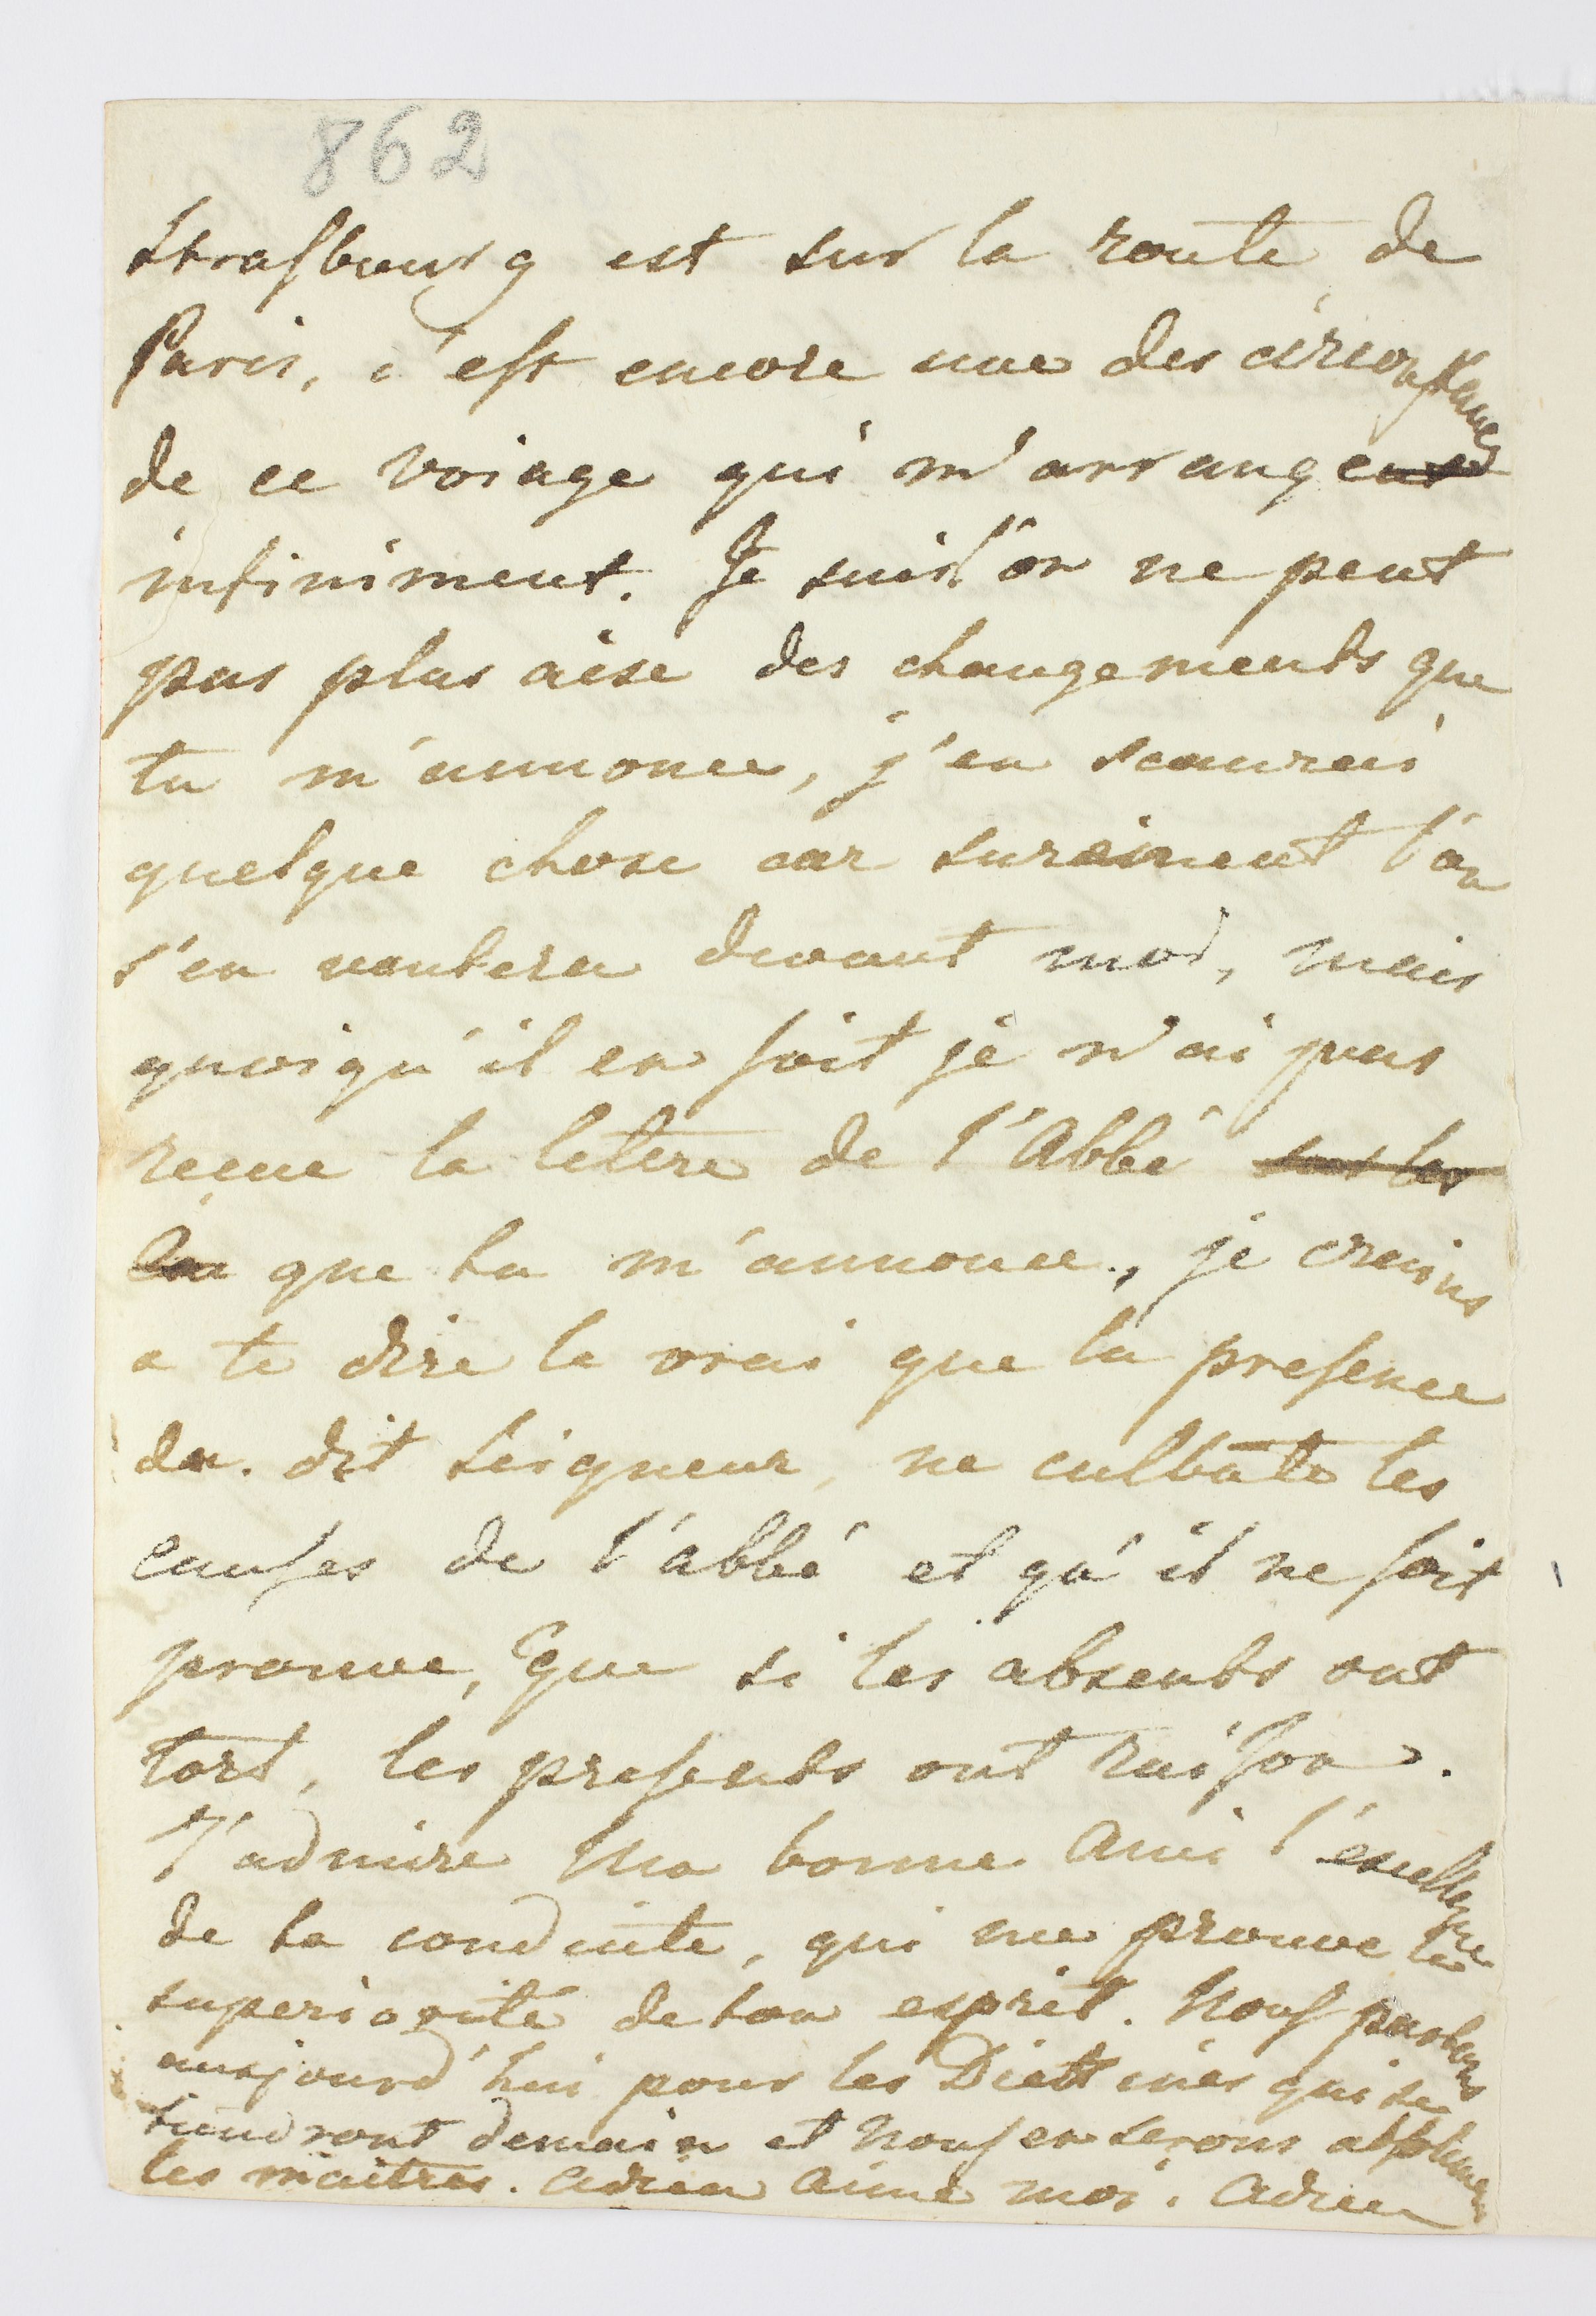 862
Strasbourg est sur la route de
Paris, c'est encore une des circonstances
de ce voiage qui m'arrange
infiniment. Je suis l'on ne peut
pas plus aise des changements que
tu m'annonce, j'en scaurai
quelque chose car surement l'on
s'en vantera devant moi, mais
quoiqu'il en soit je n'ai pas
reçue la lettre de l'Abbé
que tu m'annonce, je crains
a te dire le vrai que la presence
du dit Seigneur, ne culbute les
causes de l'abbé et qu'il ne soit
prouve, que si les absents ont
tort, les presents ont raison.
J'admire Ma bonne Ami l'
de ta conduite, qui me prouve la
superiorité de ton esprit. Nous partons
aujourd'hui pour les Diettines qui se
tiendront demain et Nous en serons
les maitres. Adieu aime moi. Adieu